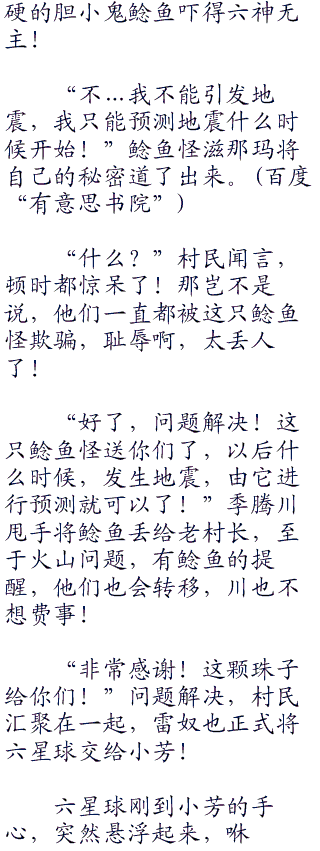 硬的胆小鬼鲶鱼吓得六神无
主！
“不…我不能引发地
震，我只能预测地震什么时
候开始！”鲶鱼怪滋那玛将
自己的秘密道了出来。(百度
“有意思书院”)
“什么？”村民闻言，
顿时都惊呆了！那岂不是
说，他们一直都被这只鲶鱼
怪欺骗，耻辱啊，太丢人
了！
“好了，问题解决！这
只鲶鱼怪送你们了，以后什
么时候，发生地震，由它进
行预测就可以了！”季腾川
甩手将鲶鱼丢给老村长，至
于火山问题，有鲶鱼的提
醒，他们也会转移，川也不
想费事！
“非常感谢！这颗珠子
给你们！”问题解决，村民
汇聚在一起，雷奴也正式将
六星球交给小芳！
六星球刚到小芳的手
心，突然悬浮起来，咻